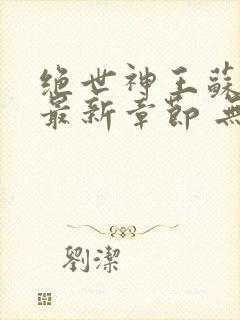 絕世神王蘇
最新章節 無
劉潔